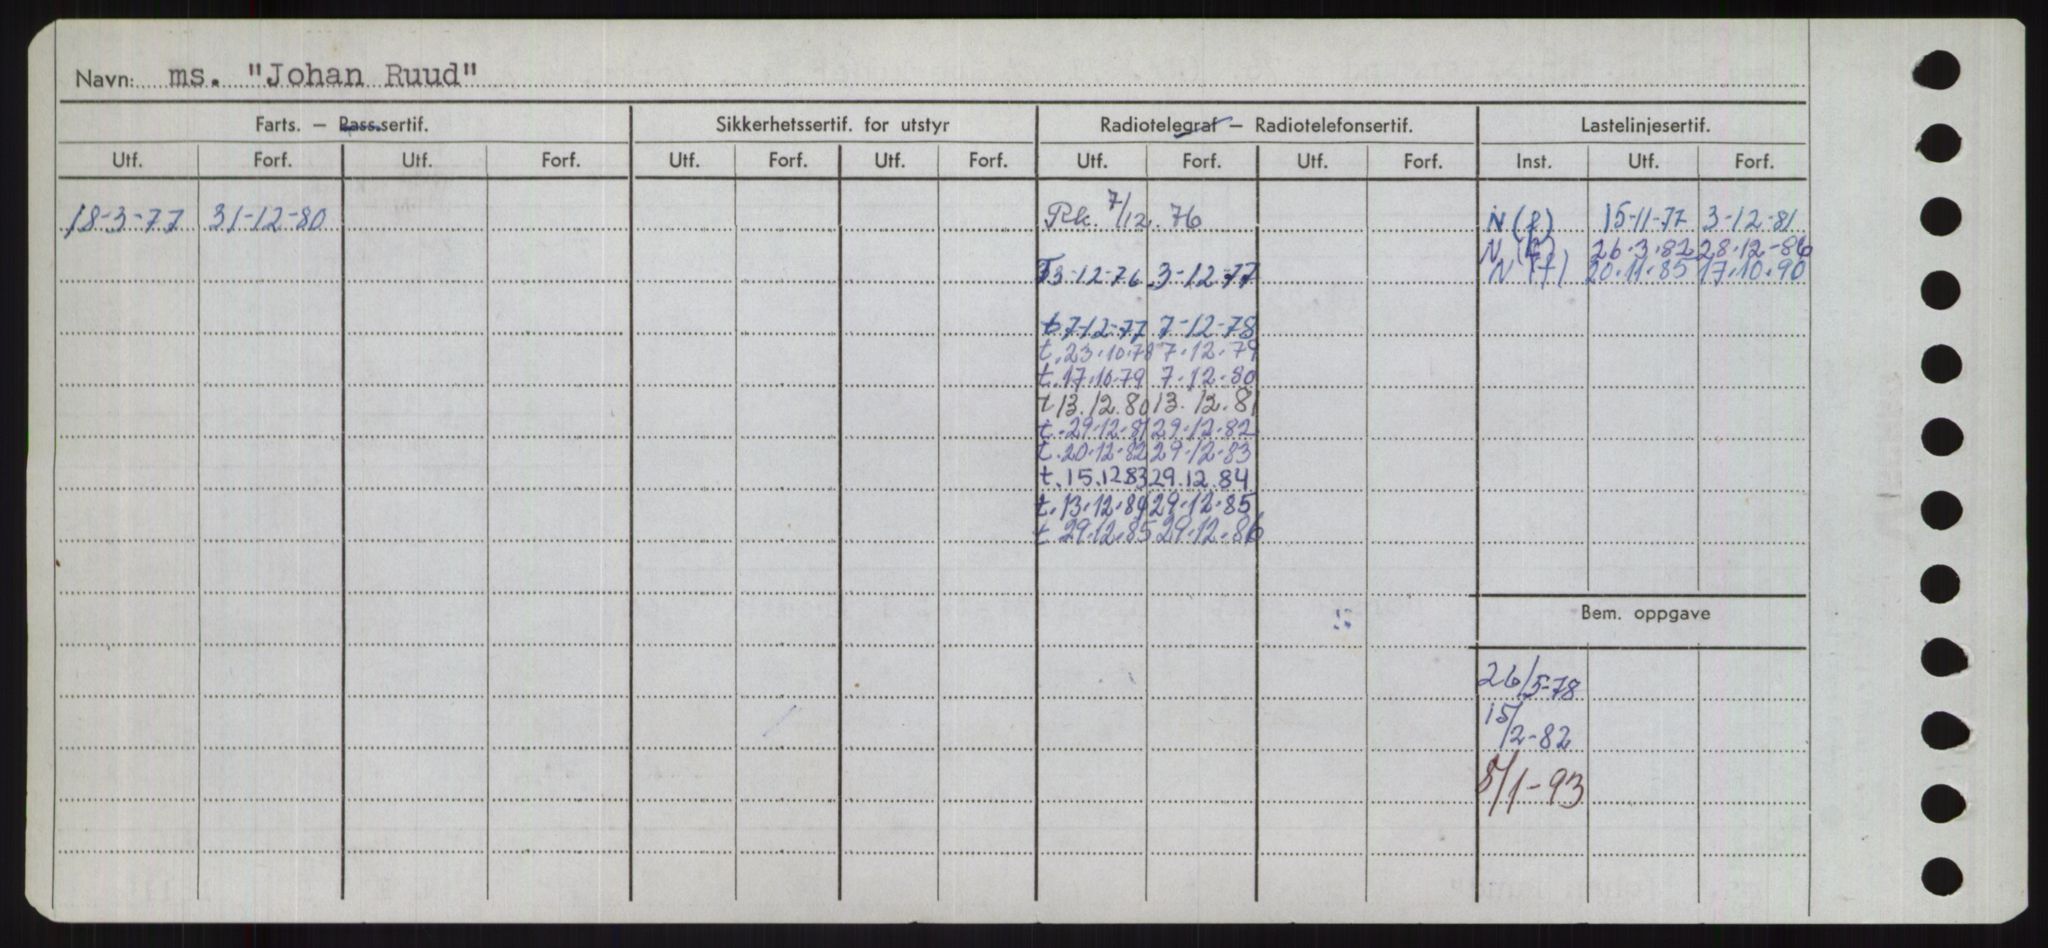 Navn: ms. "Johan Ruud"
Farts. — Pass.sertif. Sikkerhetssertif. for utstyr Radiotelegraf — Radiotelefonsertif. Lastelinjesertif.
Utf. Forf. Utf. Forf. Utf. Forf. Utf. Forf. Utf. Forf. Utf. Forf. Inst. Utf. Forf.
18-3-77 31-12-80 Rk. 7/12.76 N 15-11-77 3-12-81
N 26.3.82 28.12-86
T3-12-76 3-12-77 N 20.11.85 17.10.90
t 7-12-77 7-12-78
t. 23.10.78 7.12.79
t. 17.10.79 7.12.80
t 13.12.80 13.12.81
t. 29.12.81 29.12.82
t. 20.12.82 29.12.83
t. 15.12 83 29.12.84
t. 13.12.84 29.12.85
t. 29.12.85 29.12.86
Bem. oppgave
26/5-78
15/2-82
8/1-93